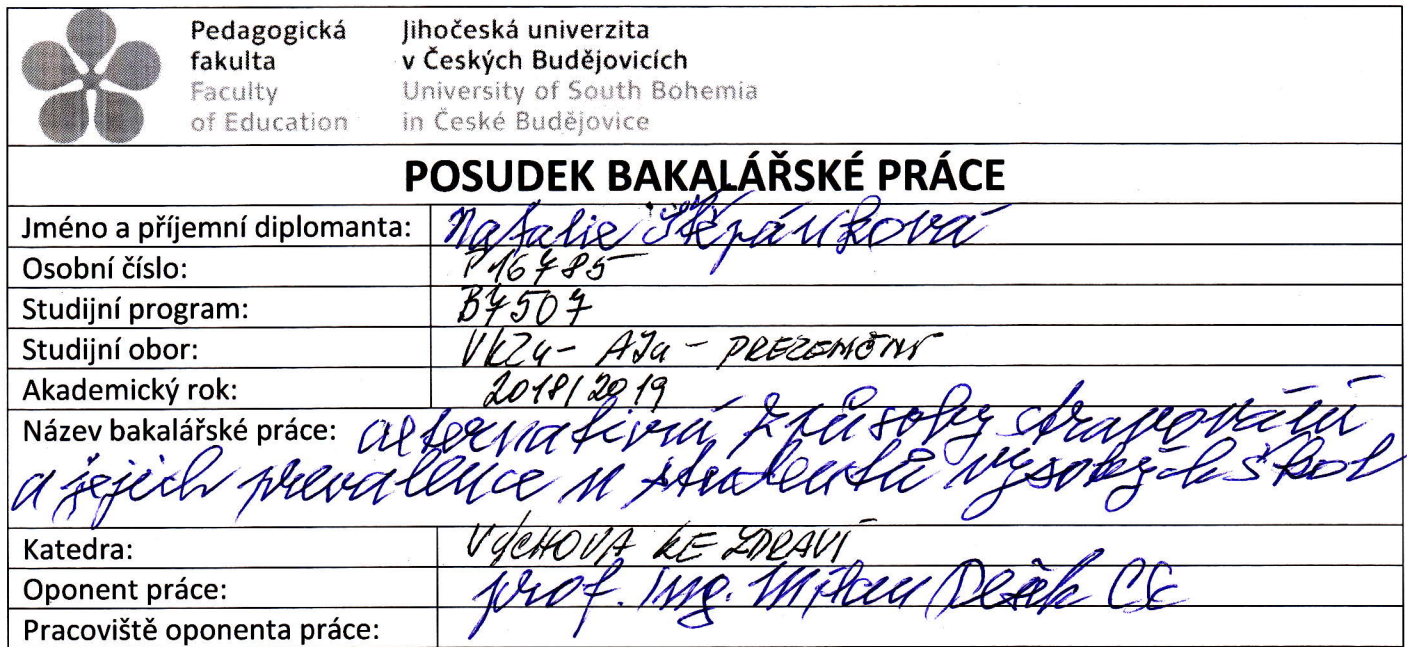 Pedagogická Jihočeská univerzita
fakulta v Českých Budějovicích
Faculty University of South Bohemia
of Education in České Budějovice
POSUDEK BAKALÁŘSKÉ PRÁCE
Jméno a příjemní diplomanta: Natalie Štěpánková
Osobní číslo: P16785
Studijní program: B7507
Studijní obor: VKZu - AJu - PREZENČNÍ
Akademický rok: 2018/2019
Název bakalářské práce: Alternativní způsoby stravování
a jejich prevalence u studentů vysokých škol
Katedra: VÝCHOVA KE ZDRAVÍ
Oponent práce: prof. Ing. Milan
Pracoviště oponenta práce: